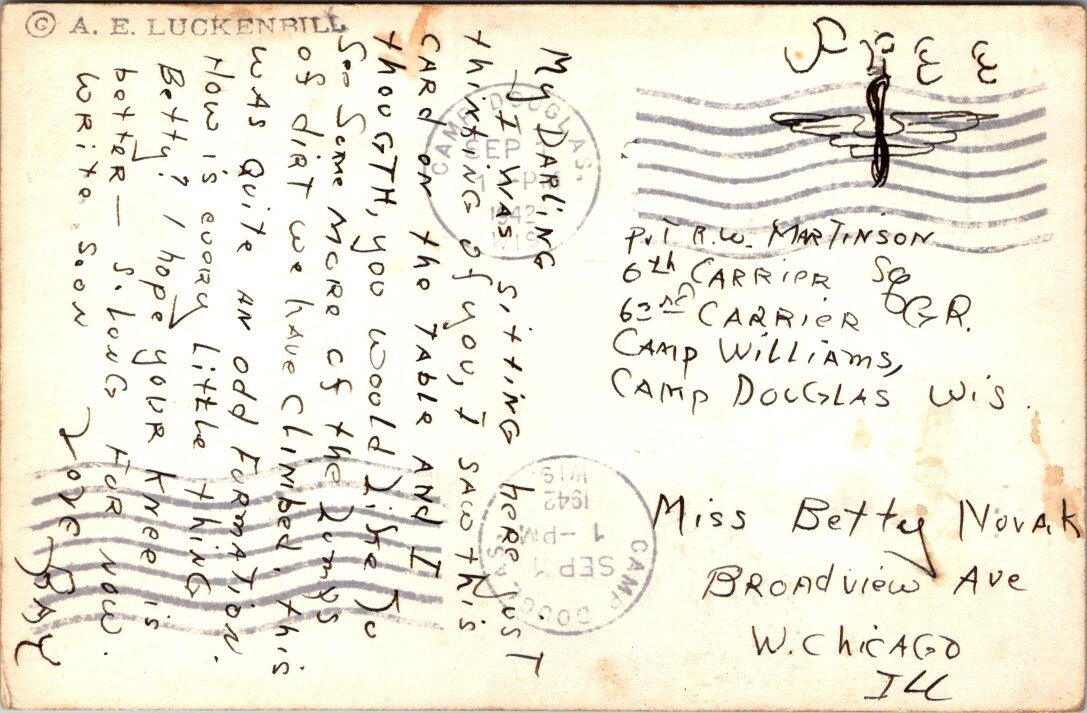 © A. E. LUCKENBILL
My DARLING
I WAS SITTING here JUST
thinting of you, I SAW this
CARD ON the TABLE AND I
thougth, you woold Like To
Soo Some more of the Lumps
of dirt we have Climbed. this
WAS Quite AN odd FORMATION.
How is evory Little thing
Betty? I hope your knee is
bottER — S.Long FOR NOW.
WRito SOON
LOVE
RAY
Free
PVT R.W. MARTINSON
6th CARRIER Sq
63rd CARRIER GR.
CAMP WilliAMS,
CAMP DOUGLAS Wis.
Miss Betty NOVAK
BROADview Ave
W. ChiCAGO
Ill
CAMP DOUGLAS.
SEP
1 PM
1942
WIS
CAMP DOUG
SEP
1-PM
1942
WIS.